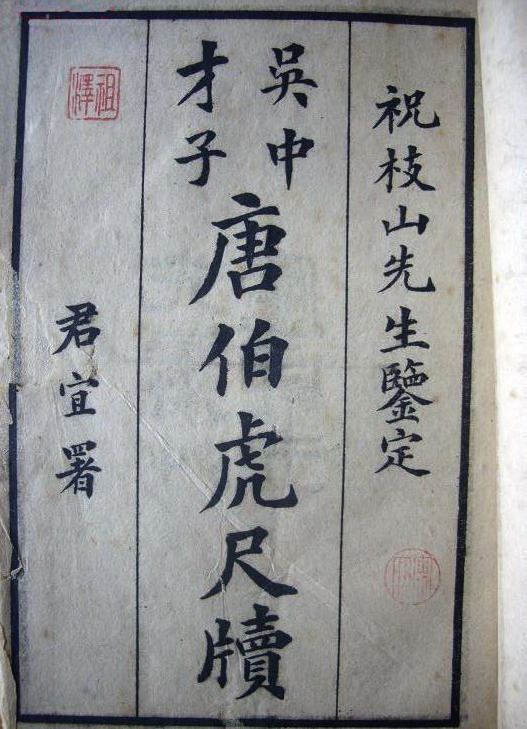 祝枝山先生鑒定
吳中
才子
唐伯虎尺牘
君宜署
祖澤